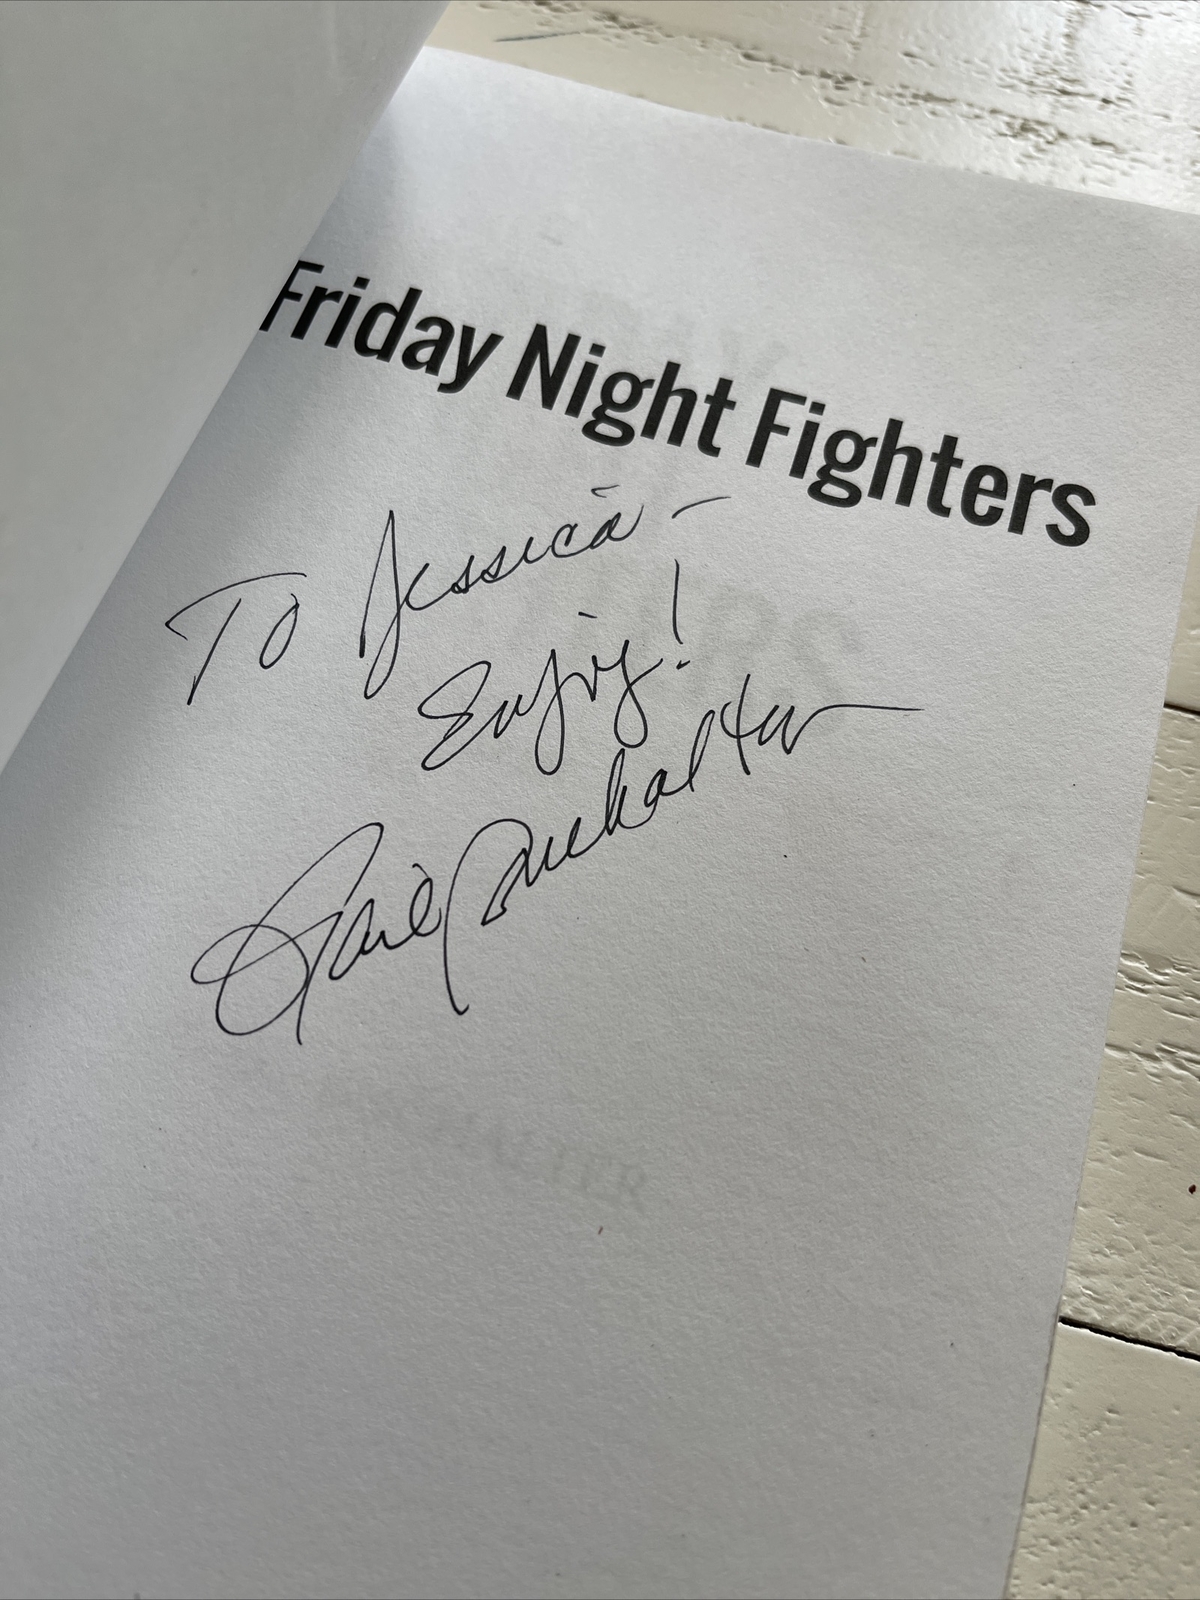 Friday Night Fighters
To Jessica -
Enjoy!
Gail Buckhalter